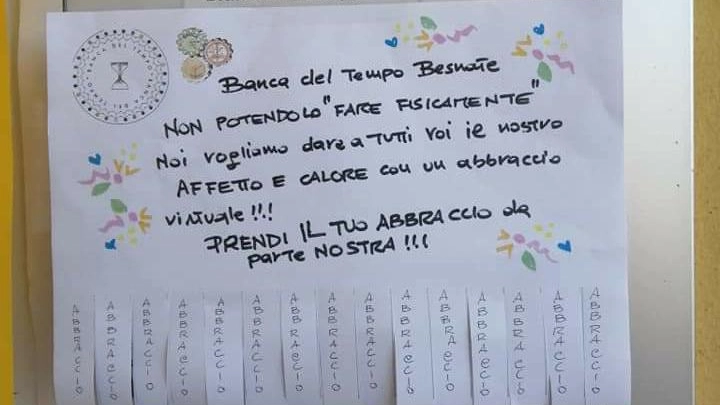 Banca del Tempo Besnate
NON POTENDOLO "FARE FISICAMENTE"
Noi vogliamo dare a TUTTI voi il nostro
AFFETTO E CALORE con un abbraccio
virtuale !!!
PRENDI IL TUO ABBRACCIO da
parte NOSTRA !!!
ABBRACCIO
ABBRACCIO
ABBRACCIO
ABBRACCIO
ABBRACCIO
ABBRACCIO
ABBRACCIO
ABBRACCIO
ABBRACCIO
ABBRACCIO
ABBRACCIO
ABBRACCIO
ABBRACCIO
ABBRACCIO
ABBRACCIO